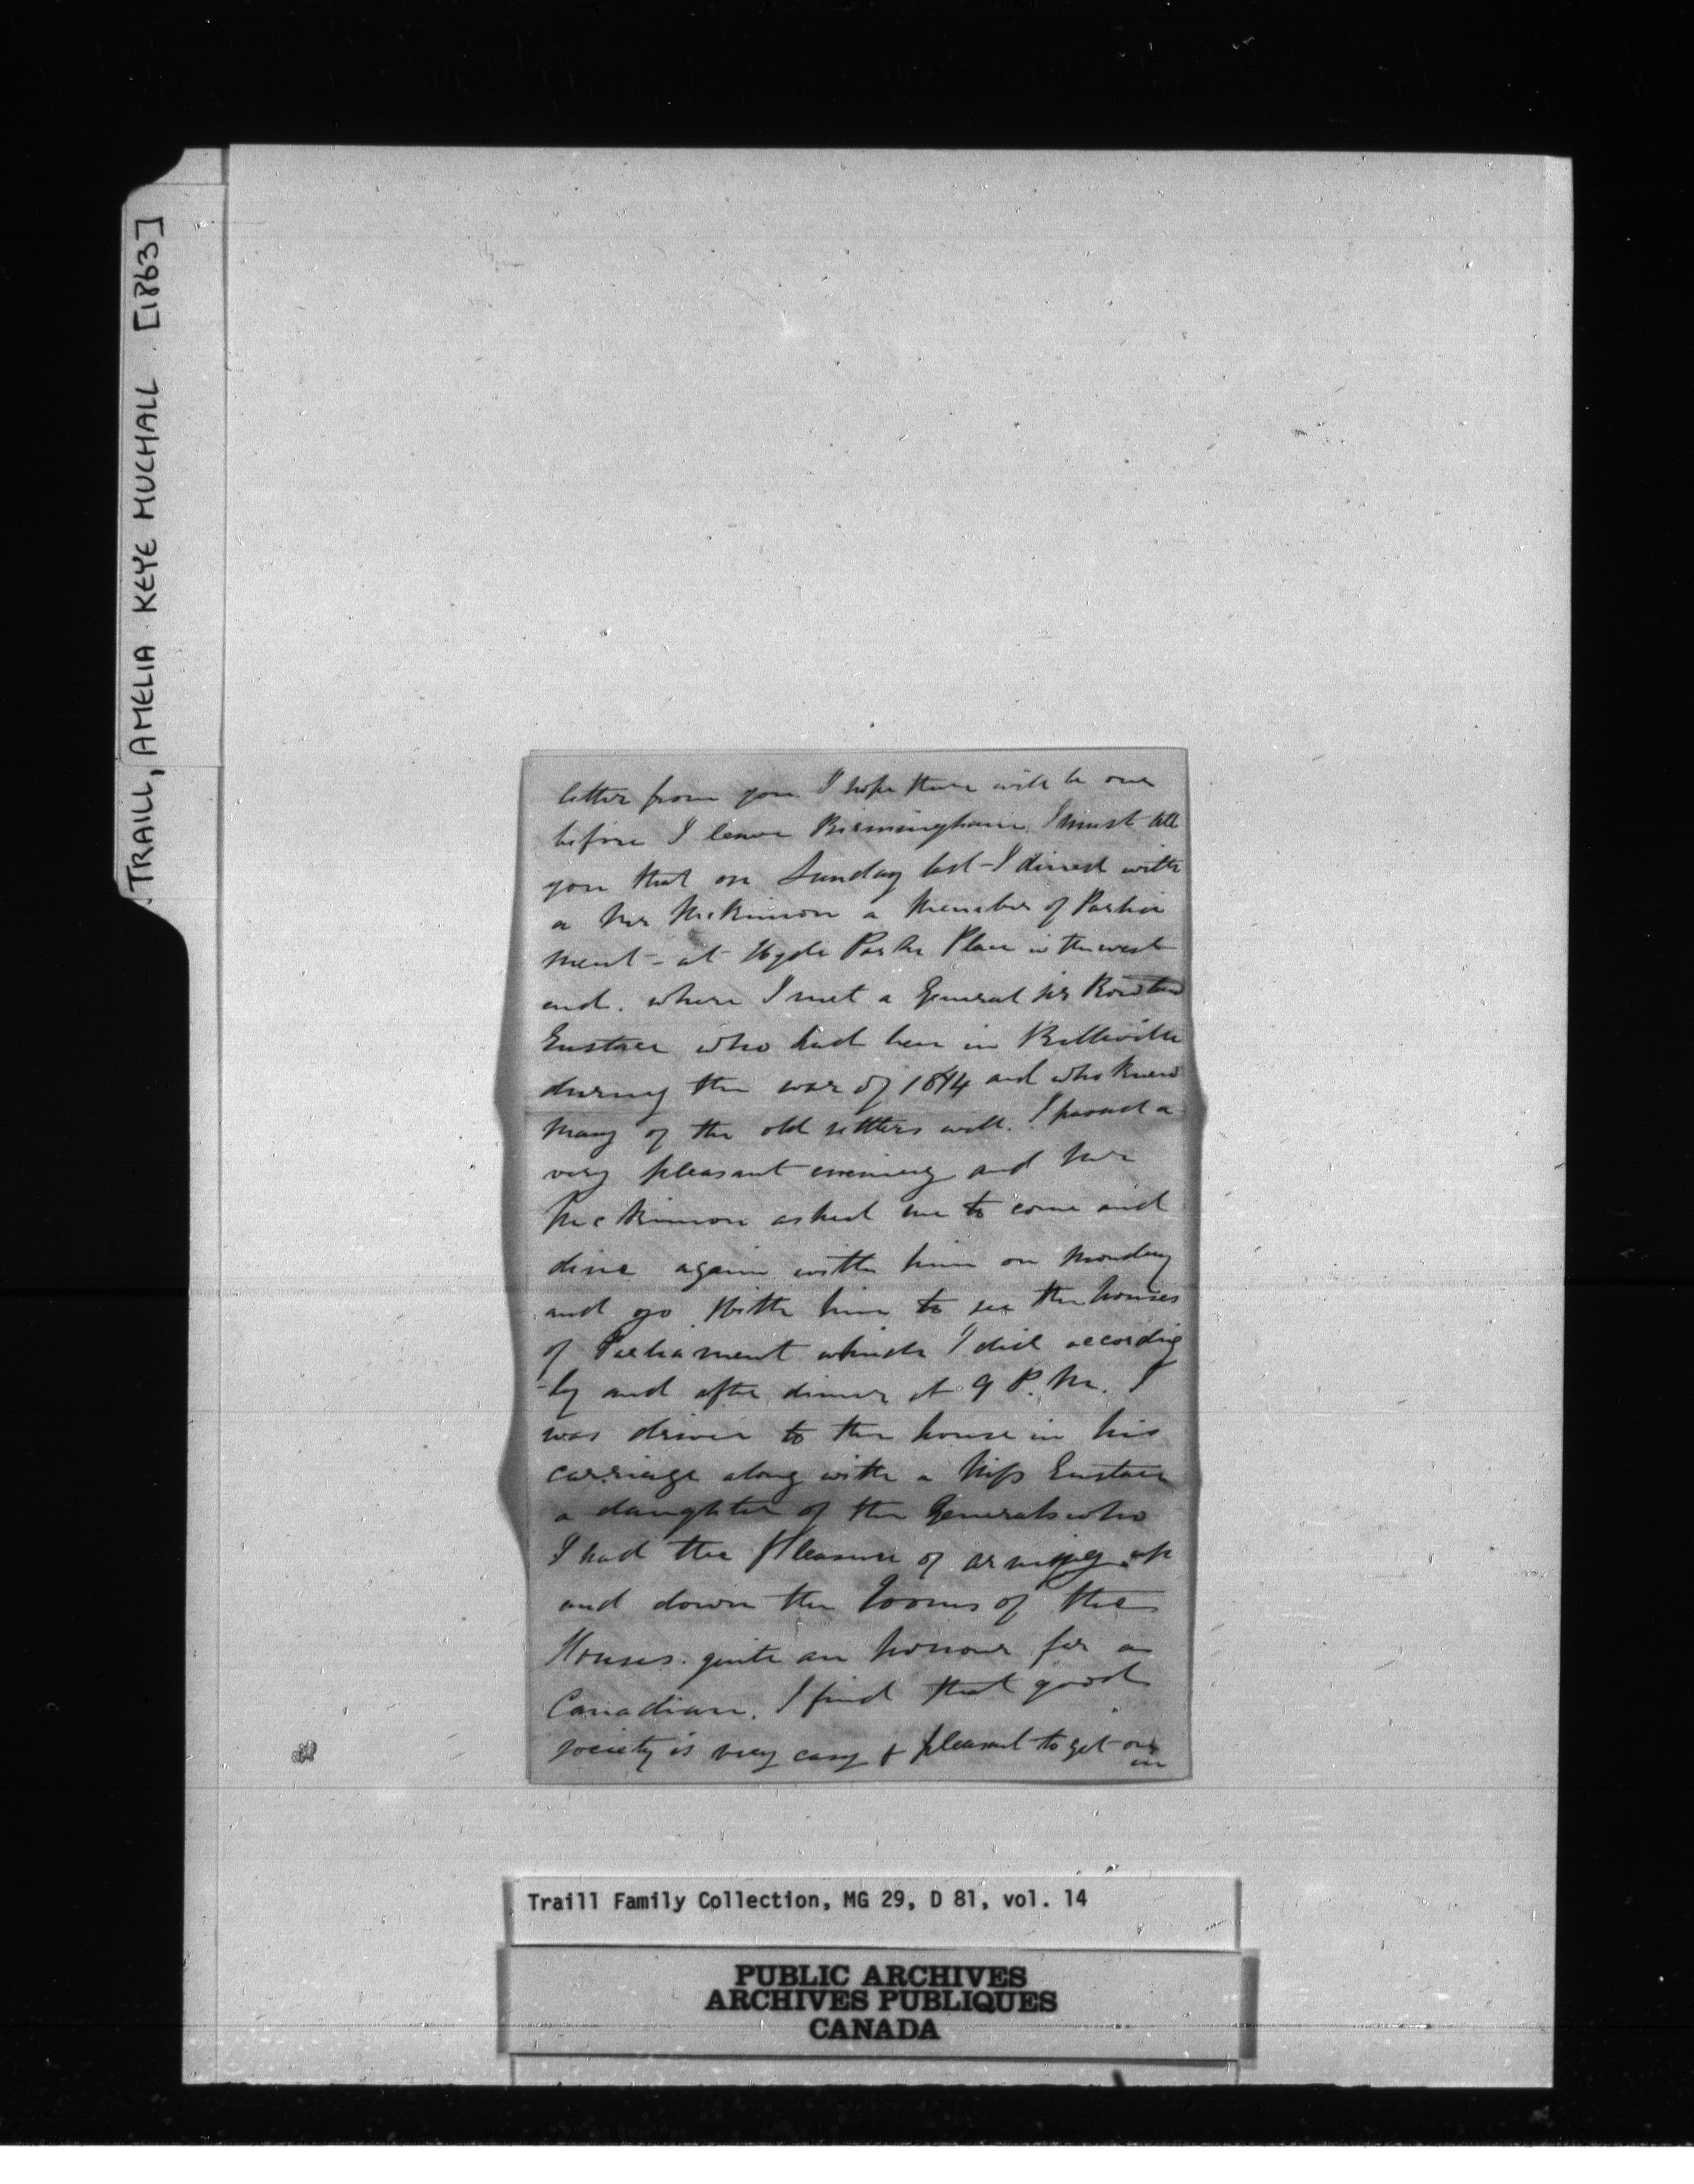 TRAILL, AMELIA KEYE MUCHALL. [1863]
letter from you I hope there will be one
before I leave Birmingham. I must tell
you that on Sunday last I dined with
a Mr McKinnon a Member of Parlia
ment - at Hyde Park Place in the west
end. where I met a General Sir
Eustace who had been in Belleville
during the war of 1814 and who knew
many of the old settlers well. I passed a
very pleasant evening and Mr
McKinnon asked me to come and
dine again with him on Monday
and go with him to see the houses
of Parliament which I did according
-ly and after dinner at 9 P.M. I
was driven to the house in his
carriage along with a Miss Eustace
a daughter of the Generals who
I had the pleasure of arming up
and down the rooms of the
Houses. quite an honour for a
Canadian. I find that good
society is very easy & pleasant to get on
in
Traill Family Collection, MG 29, D 81, vol. 14
PUBLIC ARCHIVES
ARCHIVES PUBLIQUES
CANADA